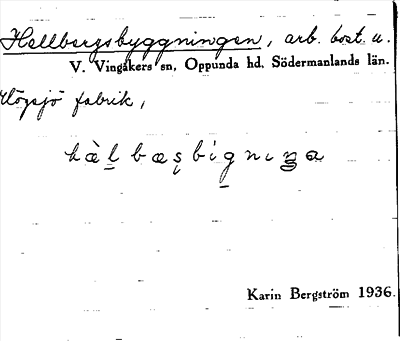 Hellbergsbyggningen, arb. bost. u.
V. Vingåkers sn, Oppunda hd. Södermanlands län.
Högsjö fabrik,
Karin Bergström 1936.